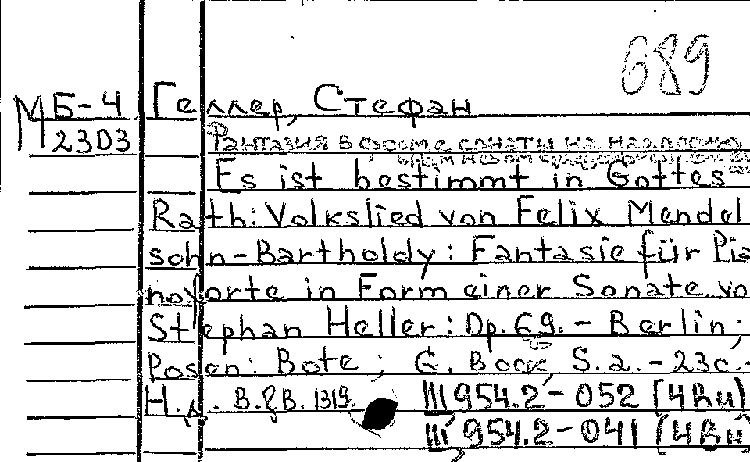 689
М Б-4 Геллер, Стефан
2303 Фантазия в форме сонаты на
Es ist bestimmt in Gottes
Rath: Volkslied von Felix Mendel
sohn-Bartholdy: Fantasie für Pia
noforte in Form einer Sonate vo
Stephan Heller: Op. 69. - Berlin;
Posen: Bote; G. Bock, S. a. - 23c.-
Н.д. B.&B. 1319. Ш954.2-052 (4Ви)
Ш954.2-041 (4Ви